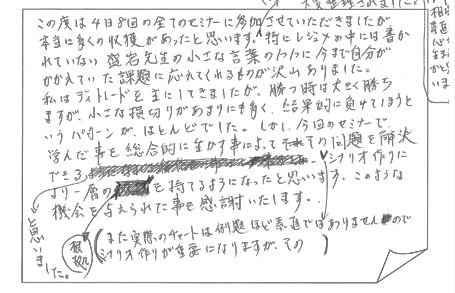 この度は4日8回の全てのセミナーに参加させていただきましたが
本当に多くの収穫があったと思います。特にレジュメの中には書か
れていない 盤岩先生の小さな言葉の中に今まで自分が
かかえていた課題に応えてくれるものが沢山ありました。
私はデイトレードを主にしてきましたが、勝つ時は大きく勝ち
ますが、小さな損切りがあまりにも多く、結果的に負けてしまうと
いうパターンが、ほとんどでした。しかし、今回のセミナーで、
学んだ事を総合的に生かす事によってその問題を解決
できる
シナリオ作りに
より一層の を持てるようになったと思います。このような
機会を与えられた事を感謝いたします。
と思いました。
根拠
(また実際のチャートは例題ほど素直ではありませんので
シナリオ作りが重要になりますが、その )